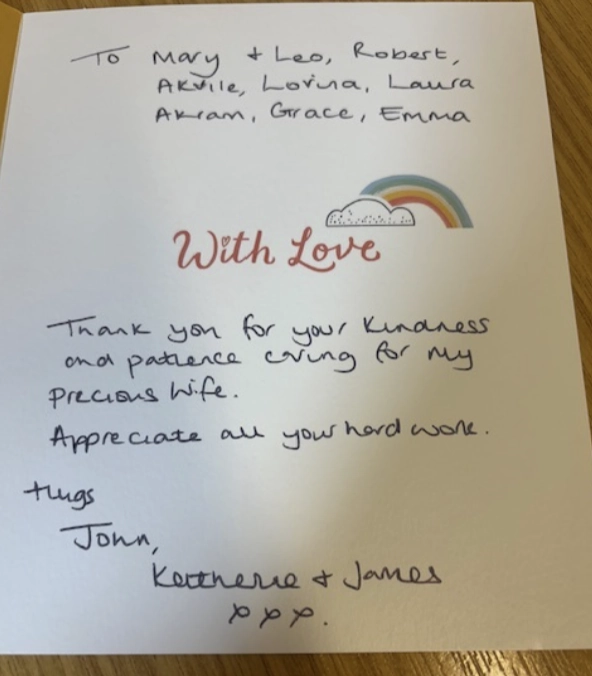 To Mary + Leo, Robert,
Akvile, Lovina, Laura
Akram, Grace, Emma
With Love
Thank you for your kindness
and patience caring for my
precious wife.
Appreciate all your hard work.
Hugs
John,
+ James
xxx.